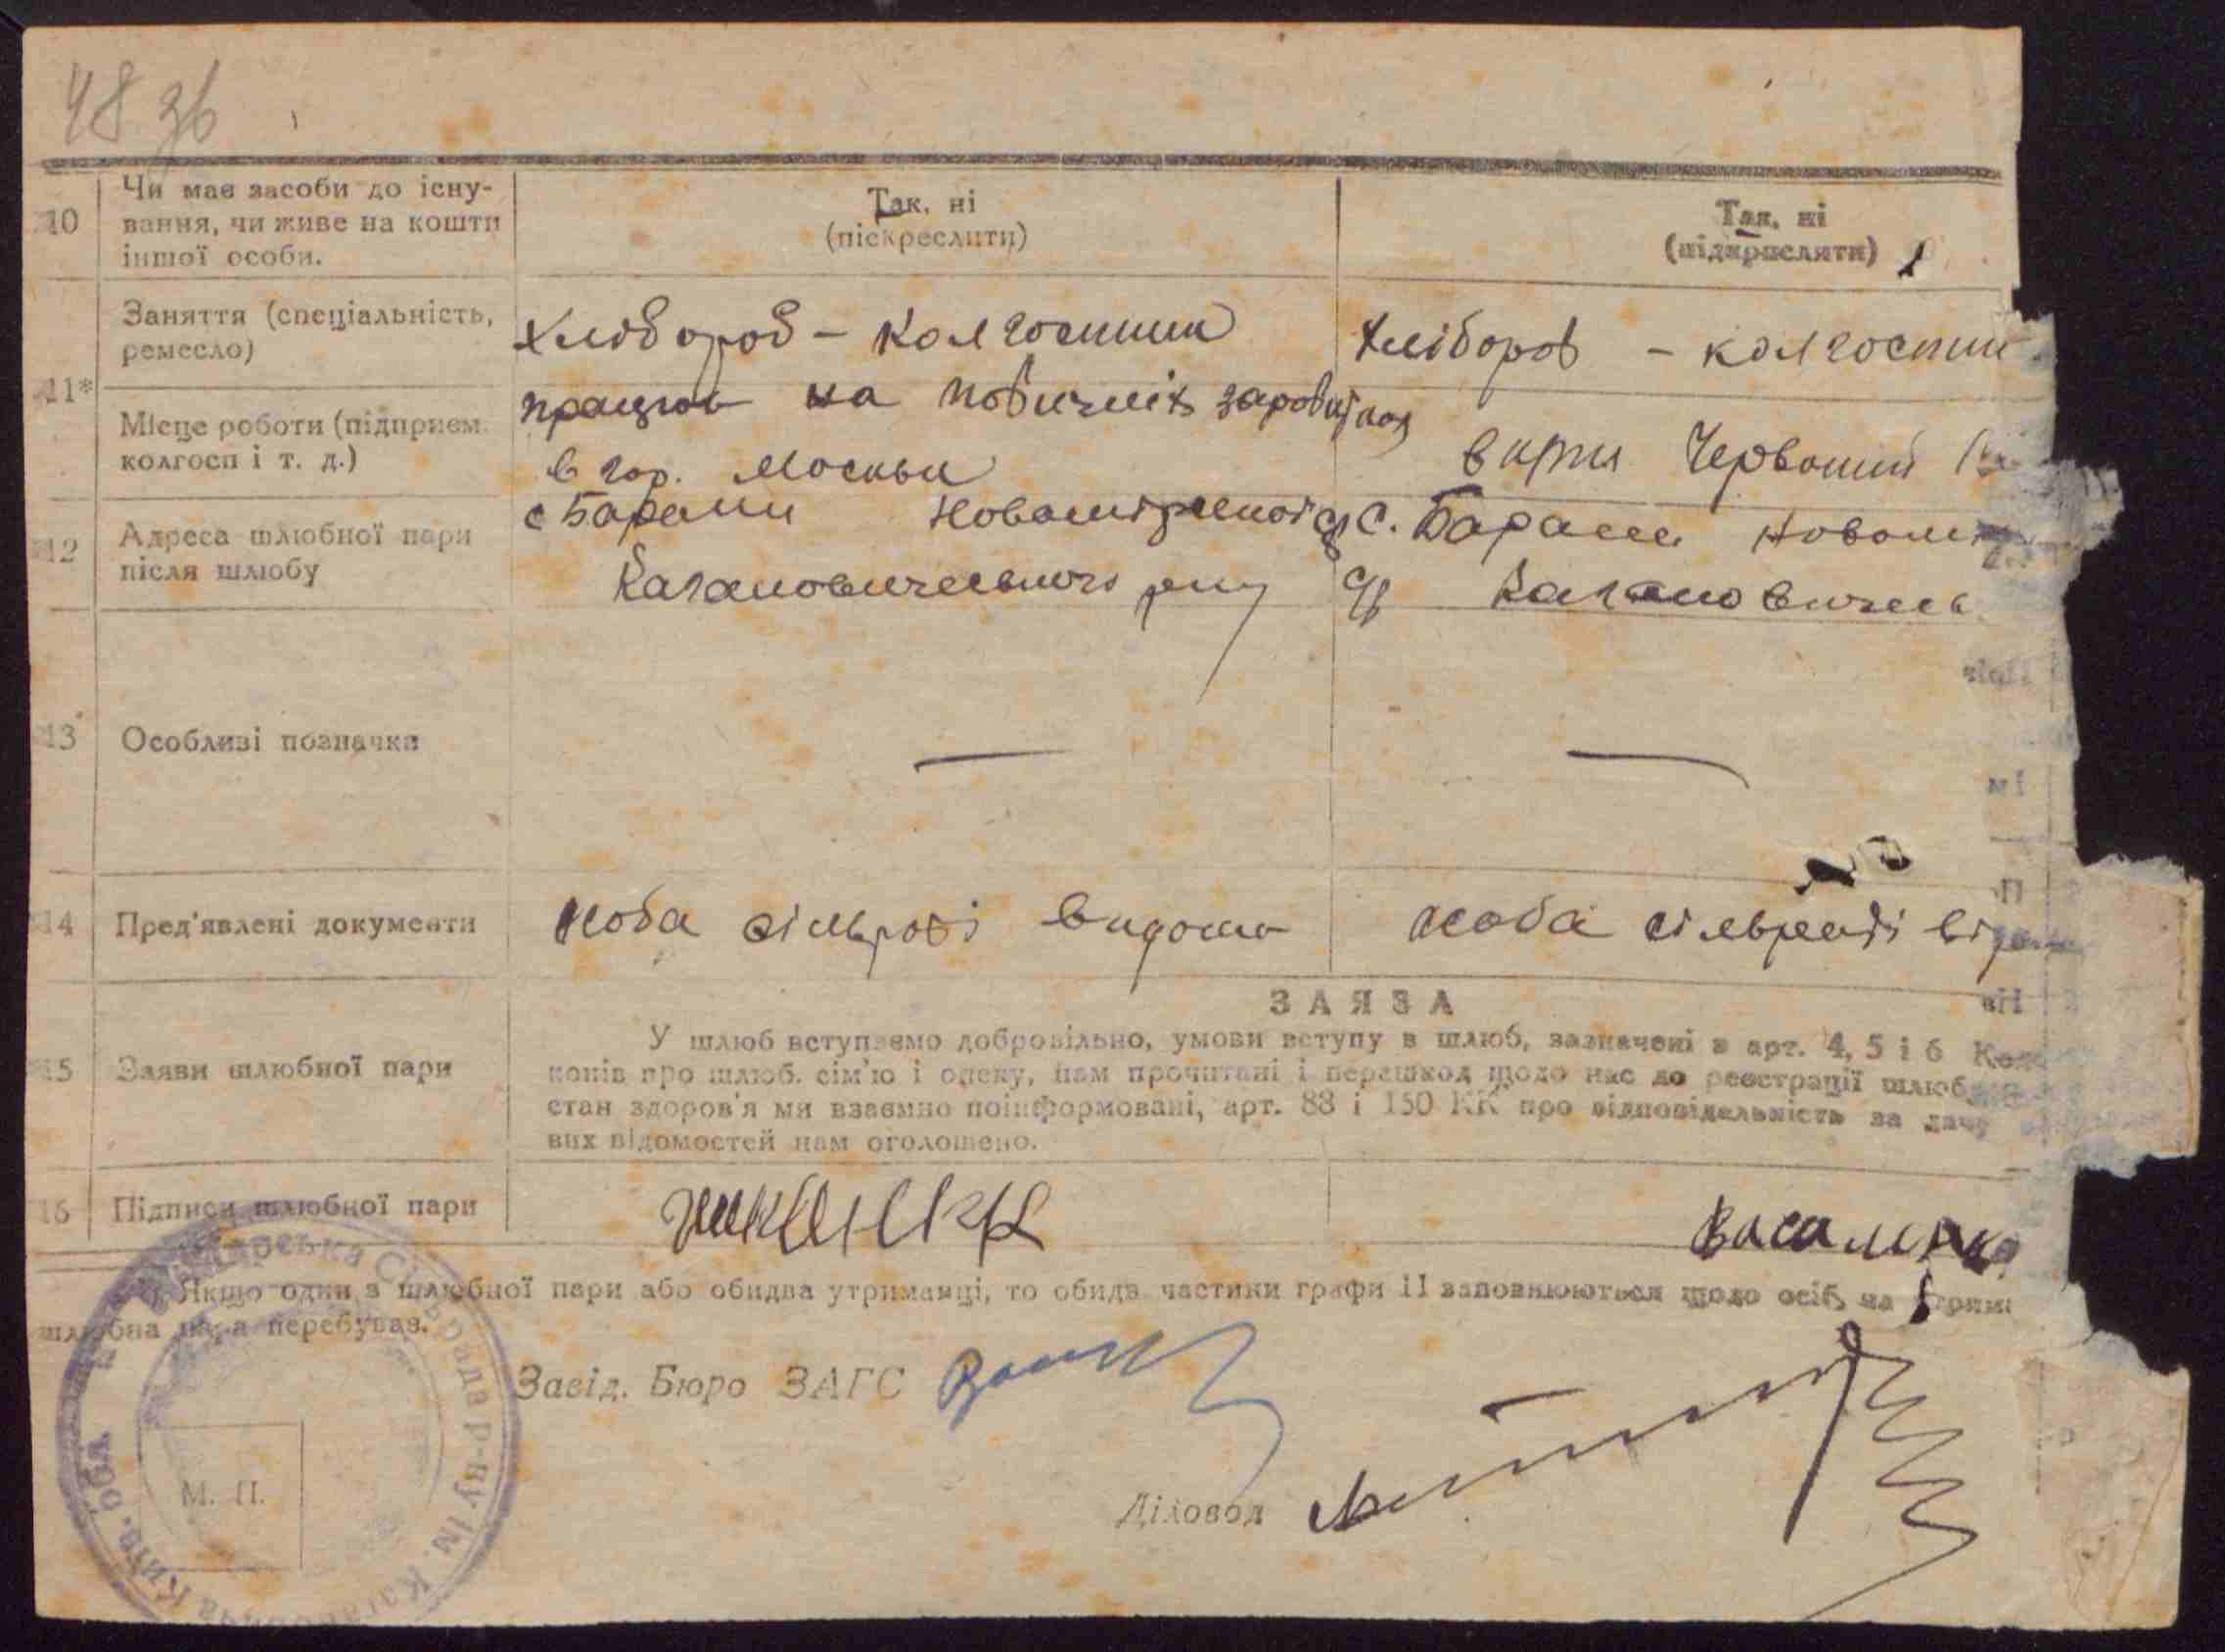 48 зв
10 Чи має засоби до існу-
вання, чи живе на кошти
іншої особи.
Так, ні
(піскреслити)
Так, ні
(підкреслити)
11*
Заняття (спеціальність,
ремесло)
Хлібороб – колгоспник
Хлібороб – колгоспни
Місце роботи (підприєм.
колгосп і т. д.)
працює на побічніх заробітках
в гор. Москви
Червоний
12 Адреса шлюбної пари
після шлюбу
с Барами
Кагановичевського рну
с.
с/р
13 Особливі позначки
—
—
14 Пред'явлені документи
особа сільраді видома
особа сільраді
15 Заяви шлюбної пари
ЗАЯВА
У шлюб вступаємо добровільно, умови вступу в шлюб, зазначені в арт. 4, 5 і 6
конів про шлюб. сім'ю і опеку, нам прочитані і перешкод щодо нас до реєстрації шлюбу
стан здоров'я ми взаємно поінформовані, арт. 88 і 150 КК про відповідальність за дачу
вих відомостей нам оголошено.
16 Підписи шлюбної пари
Василенко
Якщо один з шлюбної пари або обидва утриманці, то обидв частини графи 11 заповнюються щодо осіб, на
шлюбна пара перебуває.
Завід. Бюро ЗАГС
Діловод
М. П.
Сільрада р-ну ім. Кагановича Київ. обл.